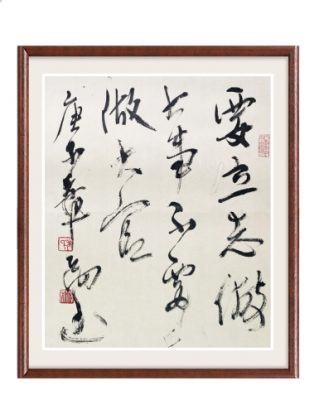 要立志做
大事不要
做大官
庚子